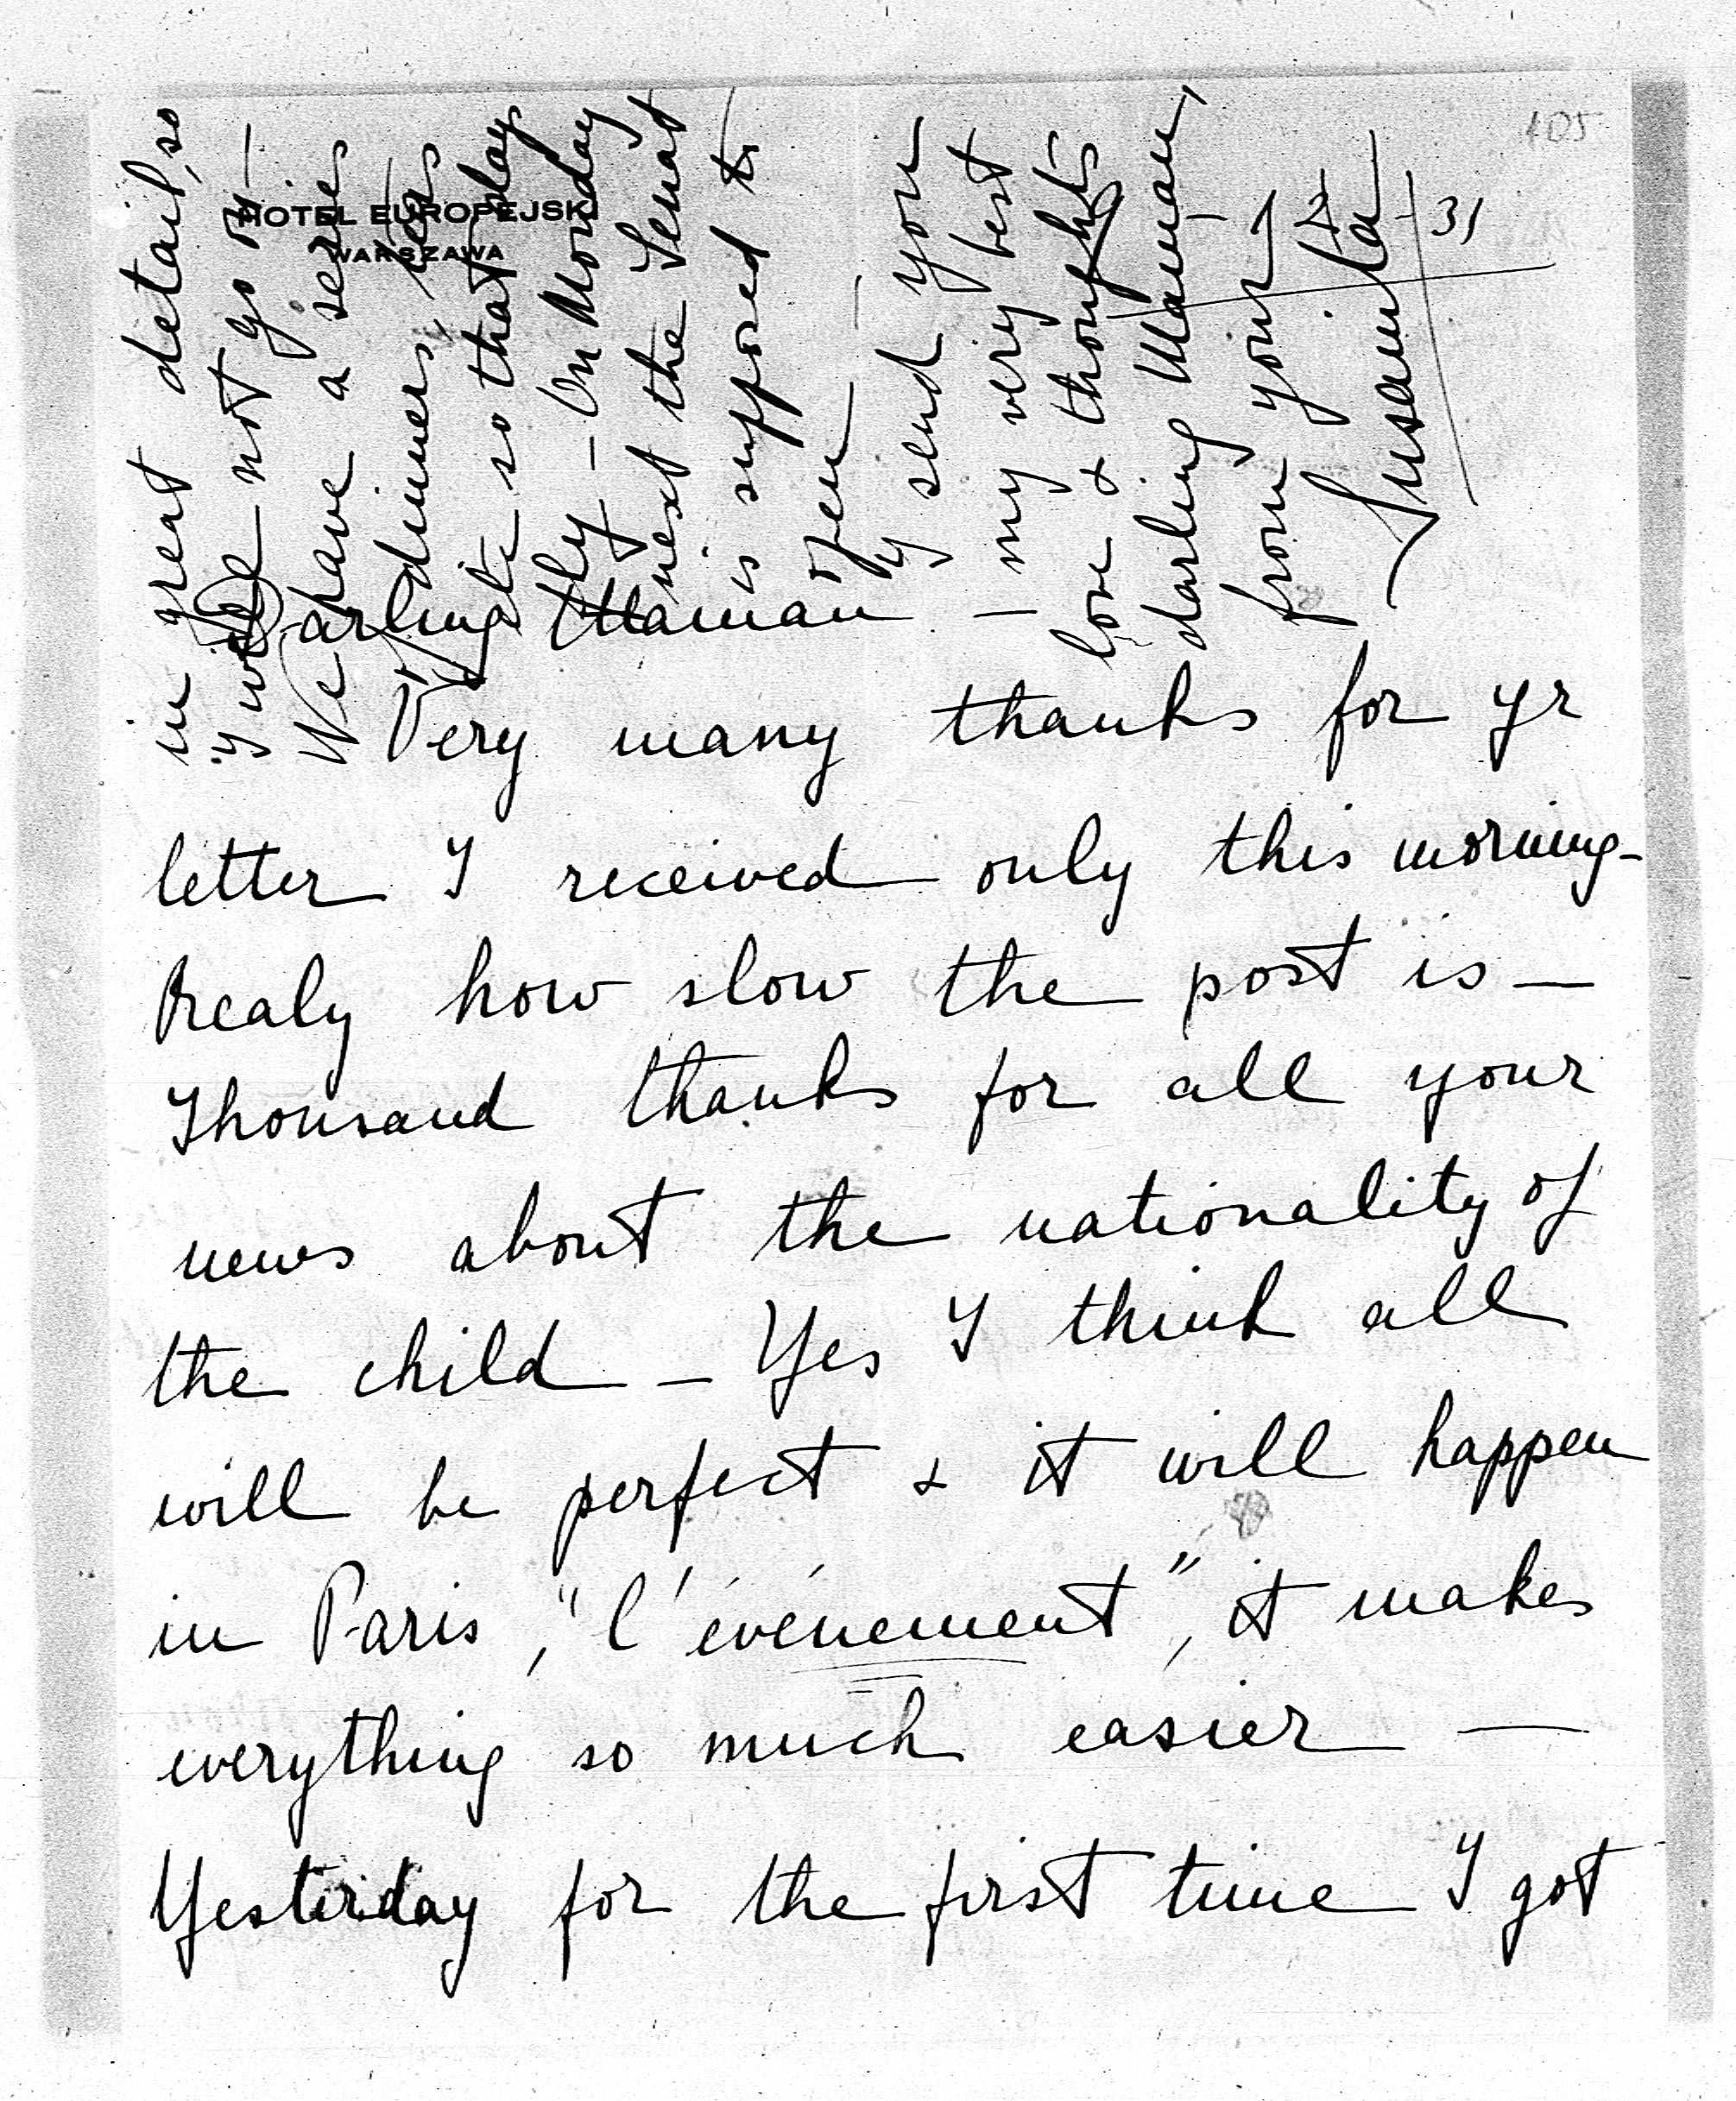 105
HOTEL EUROPEJSKI
WARSZAWA
12 - 31
Darling Maman —
Very many thanks for yr
letter I received only this morning -
Realy how slow the post is —
Thousand thanks for all your
news about the nationality of
the child — Yes I think all
will be perfect & it will happen
in Paris, "l'événement", it makes
everything so much easier —
Yesterday for the first time I got
in great detail, so
I will not go on —
We have a serie
of dinners, teas
so that day
fly — On Monday
next the Senat
is supposed to
open —
I send you
my very best
love & thoughts
darling Maman,
from your
Susanita